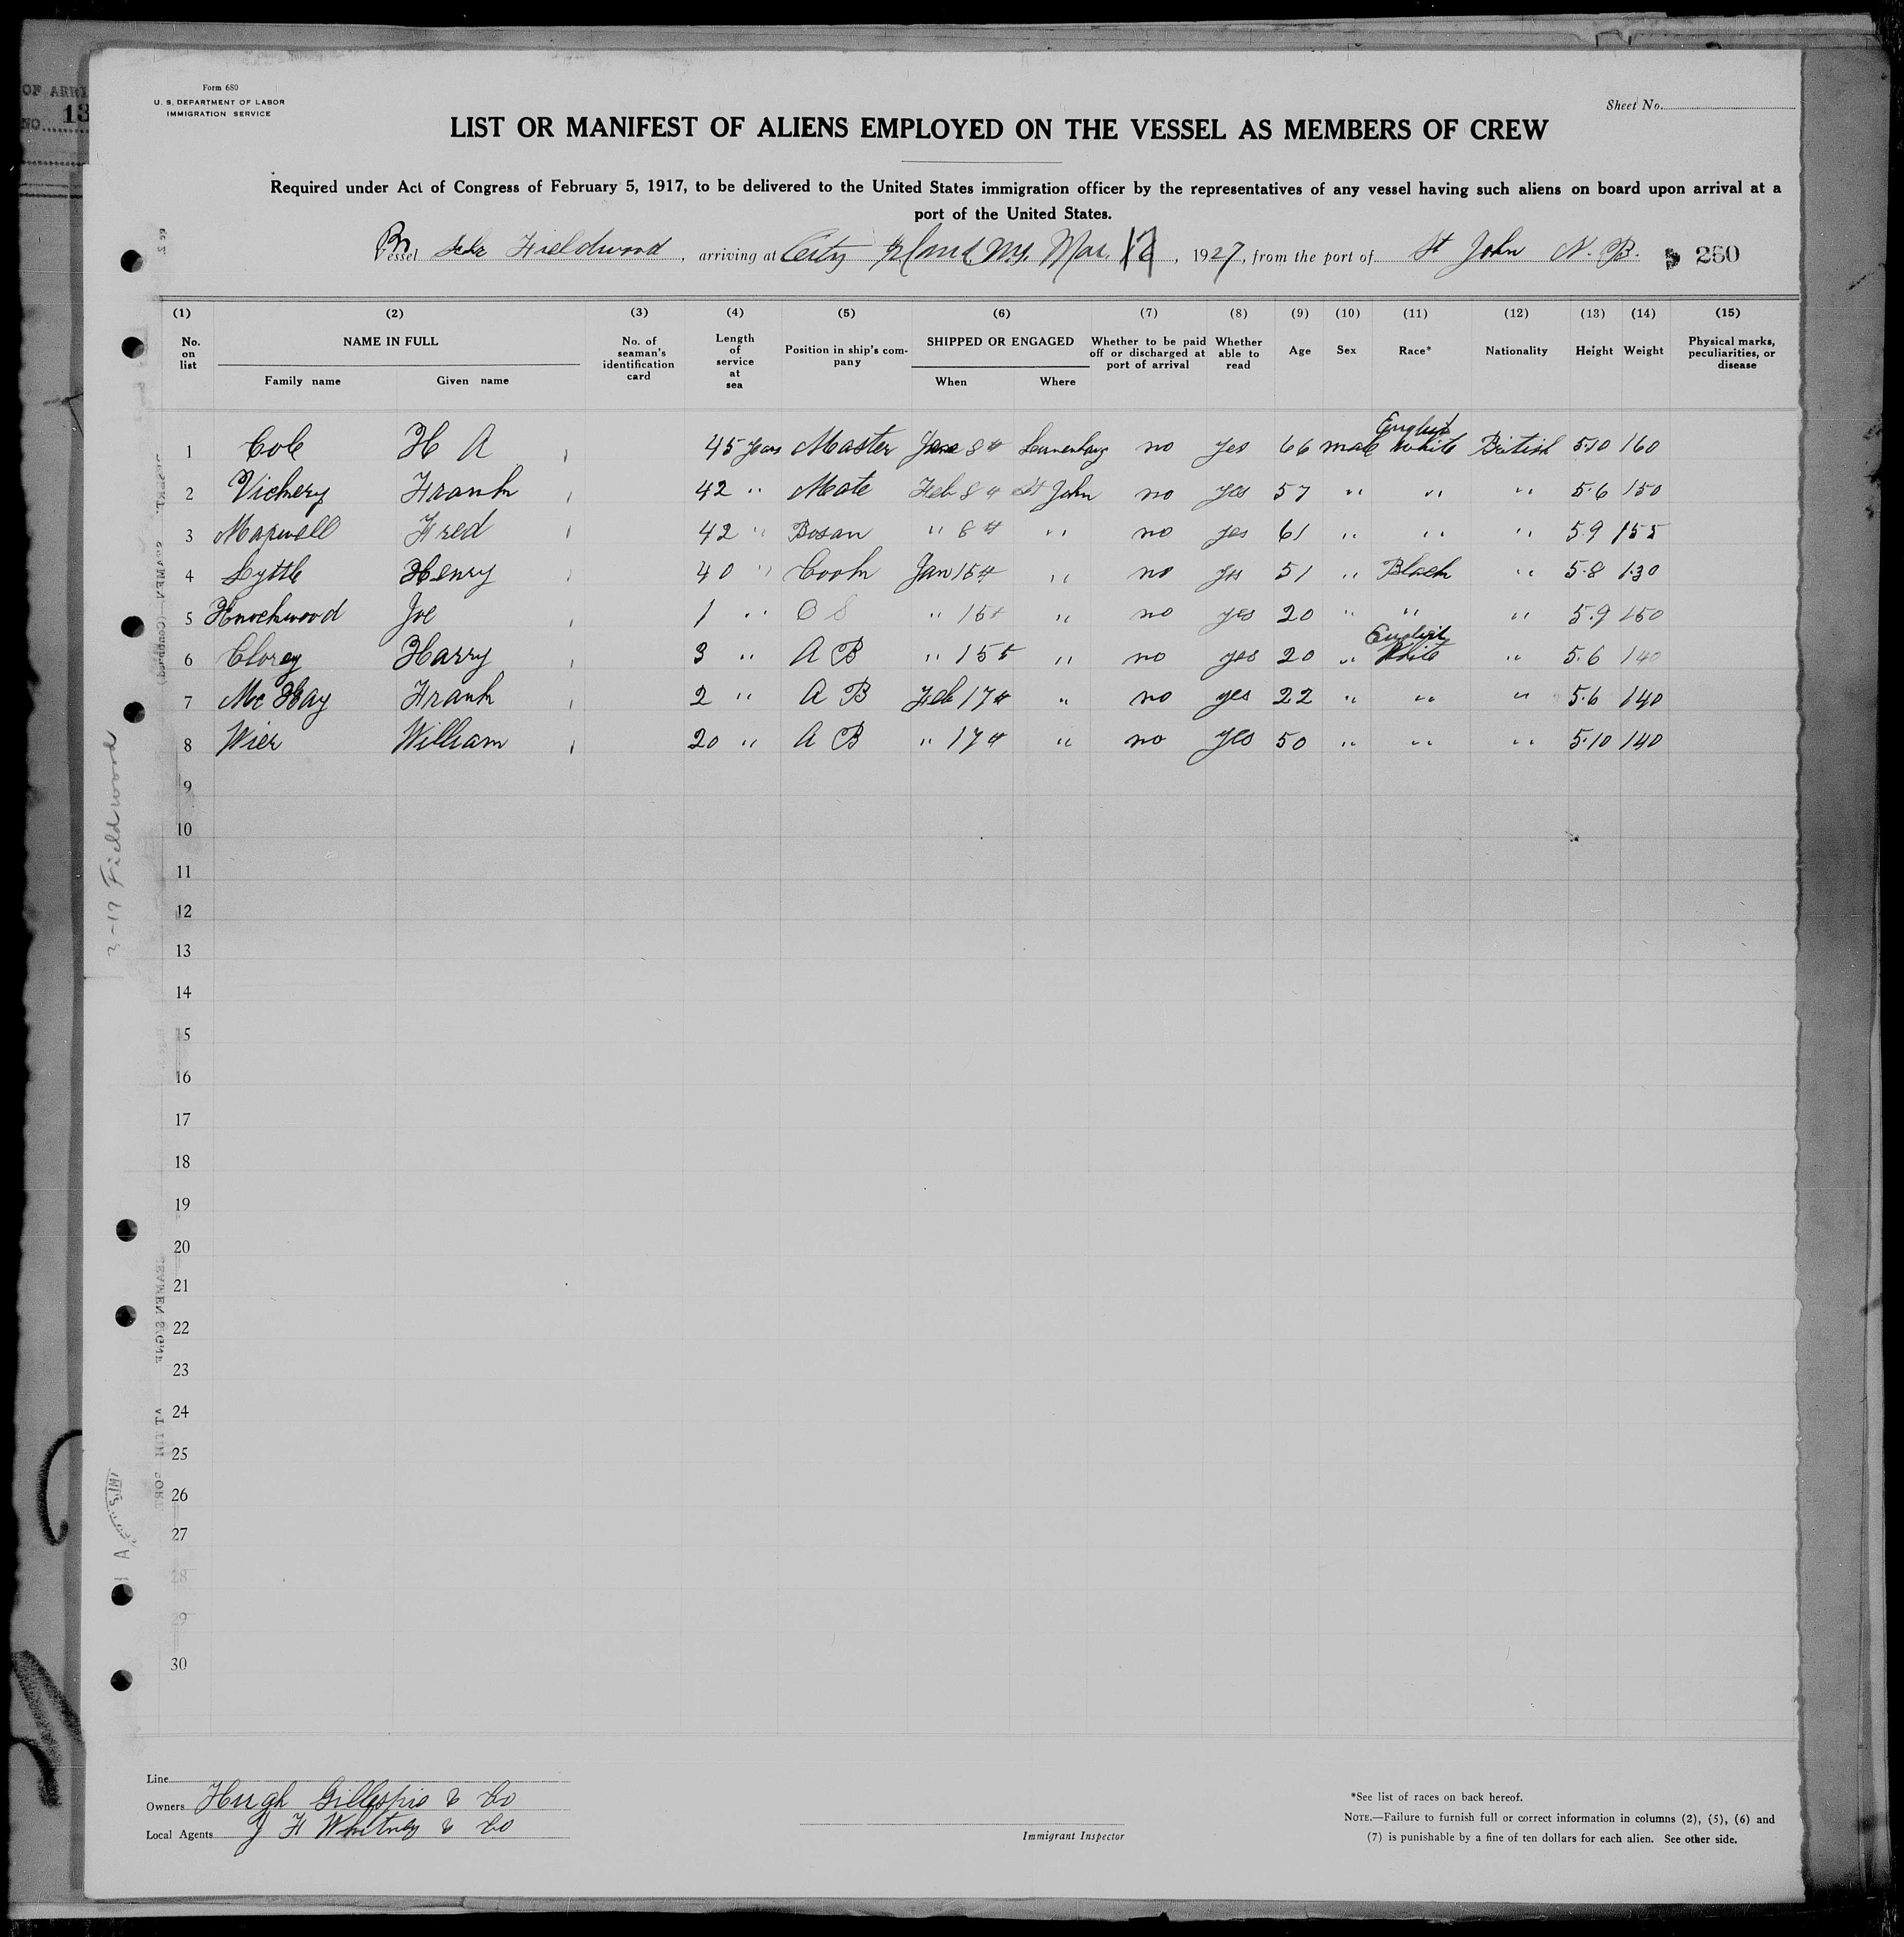 OF ARRI
NO. 13
Form 680
U. S. DEPARTMENT OF LABOR
IMMIGRATION SERVICE
Sheet No.
LIST OR MANIFEST OF ALIENS EMPLOYED ON THE VESSEL AS MEMBERS OF CREW
Required under Act of Congress of February 5, 1917, to be delivered to the United States immigration officer by the representatives of any vessel having such aliens on board upon arrival at a
port of the United States.
Br Vessel Schr Fieldwood, arriving at City Island NY. Mar. 1927, from the port of St John N. B. 250
(1) (2) (3) (4) (5) (6) (7) (8) (9) (10) (11) (12) (13) (14) (15)
No. on list NAME IN FULL Family name Given name No. of seaman's identification card Length of service at sea Position in ship's company SHIPPED OR ENGAGED When Where Whether to be paid off or discharged at port of arrival Whether able to read Age Sex Race* Nationality Height Weight Physical marks, peculiarities, or disease
English
1 Cole H A 45 years Master 8th Lunenburg no yes 66 male White British 5.10 160
2 Vickery Frank 42 " Mate Feb 8th St John no yes 57 " " " 5.6 150
3 Maxwell Fred 42 " Bosan " 8th " no yes 61 " " " 5.9 155
4 Lyttle Henry 40 " Cook Jan 15th " no yes 51 " Black " 5.8 130
5 Knockwood Joe 1 " O S " 15t " no yes 20 " " " 5.9 150
English
6 Clorey Harry 3 " A B " 15 " no yes 20 " White " 5.6 140
7 McKay Frank 2 " A B Feb 17th " no yes 22 " " " 5.6 140
8 Wier William 20 " A B " 17th " no yes 50 " " " 5.10 140
9
10
11
12
13
14
15
16
17
18
19
20
21
22
23
24
25
26
27
28
29
30
3-17 Fieldwood
Line
Owners Hugh Gillespie & Co
Local Agents J F Whitney & Co
Immigrant Inspector
*See list of races on back hereof.
NOTE.—Failure to furnish full or correct information in columns (2), (5), (6) and
(7) is punishable by a fine of ten dollars for each alien. See other side.